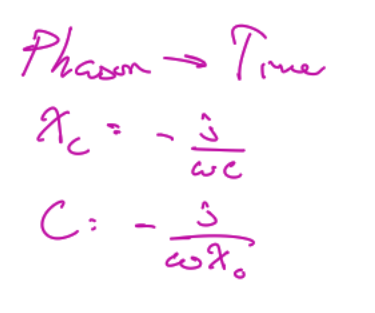 Phasor → Time
X_c = - j/ωC
C = - j/ωX_o